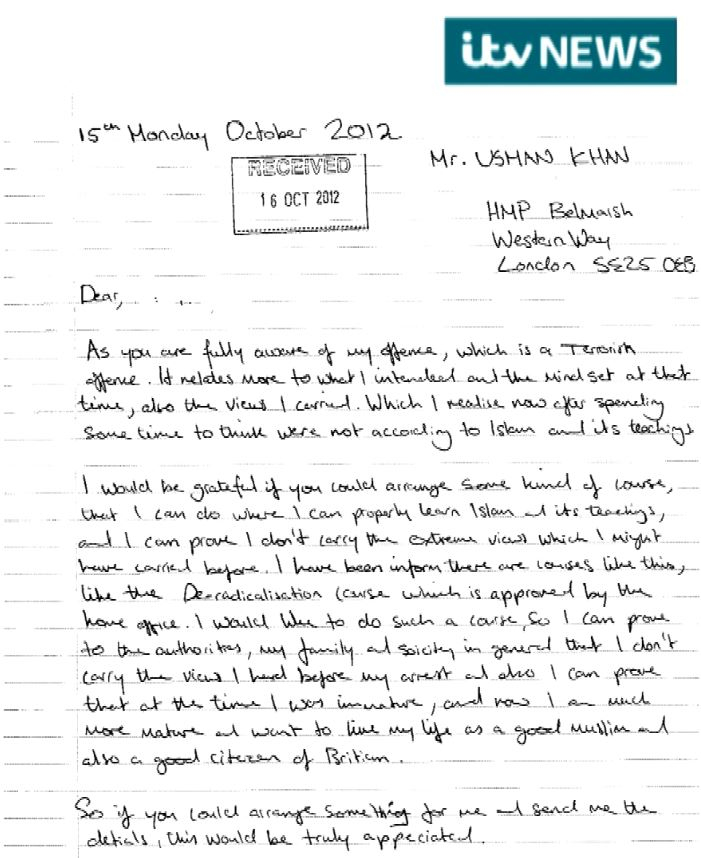 itv NEWS
15th Monday October 2012.
RECEIVED
16 OCT 2012
Mr. USMAN KHAN
HMP Belmarsh
Western Way
London SE25 0EB
Dear,
As you are fully aware of my offence, which is a Terrorism
offence. It relates more to what I intended and the mind set at that
time, also the views I carried. Which I realise now after spending
some time to think were not according to Islam and its teachings
I would be grateful if you could arrange some kind of course,
that I can do where I can properly learn Islam and its teachings,
and I can prove I don't carry the extreme views which I might
have carried before. I have been inform there are courses like this,
like the De-radicalisation course which is approved by the
home office. I would like to do such a course, so I can prove
to the authorities, my family and soicity in general that I don't
carry the views I had before my arrest and also I can prove
that at the time I was immature, and now I am much
more mature and want to live my life as a good muslim and
also a good citezen of Britian.
So if you could arrange something for me and send me the
detials, this would be truly appeciated.